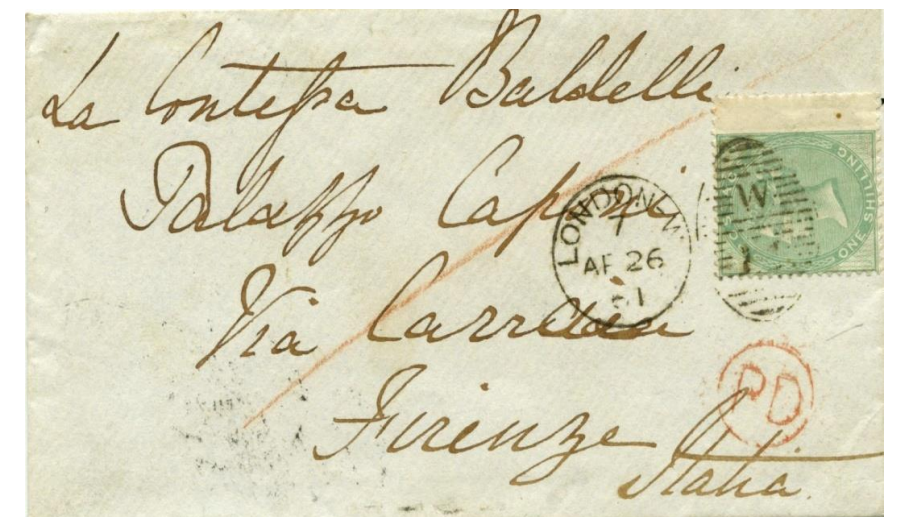 La Contessa Baldelli
Palazzo
Via
Firenze
Italia
LONDON-W
7
AP 26
61
W
1
ONE SHILLING
PD